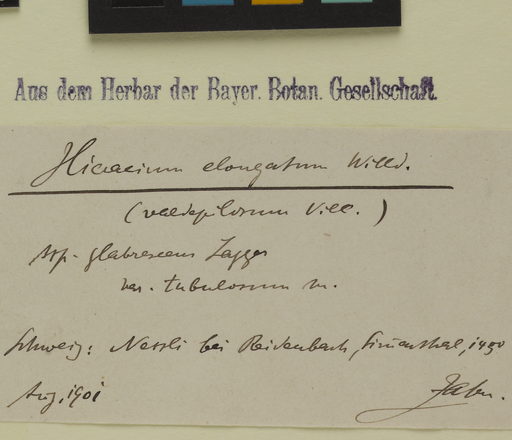 Aus dem Herbar der Bayer. Botan. Gesellschaft.
Hieracium elongatum Willd.
(valdepilosum Vill.)
ssp. glabrescens
var. tubulosum m.
Schweiz: Nessli bei Reidenbach, Simmenthal, 1450
Aug. 1901 Zahn.